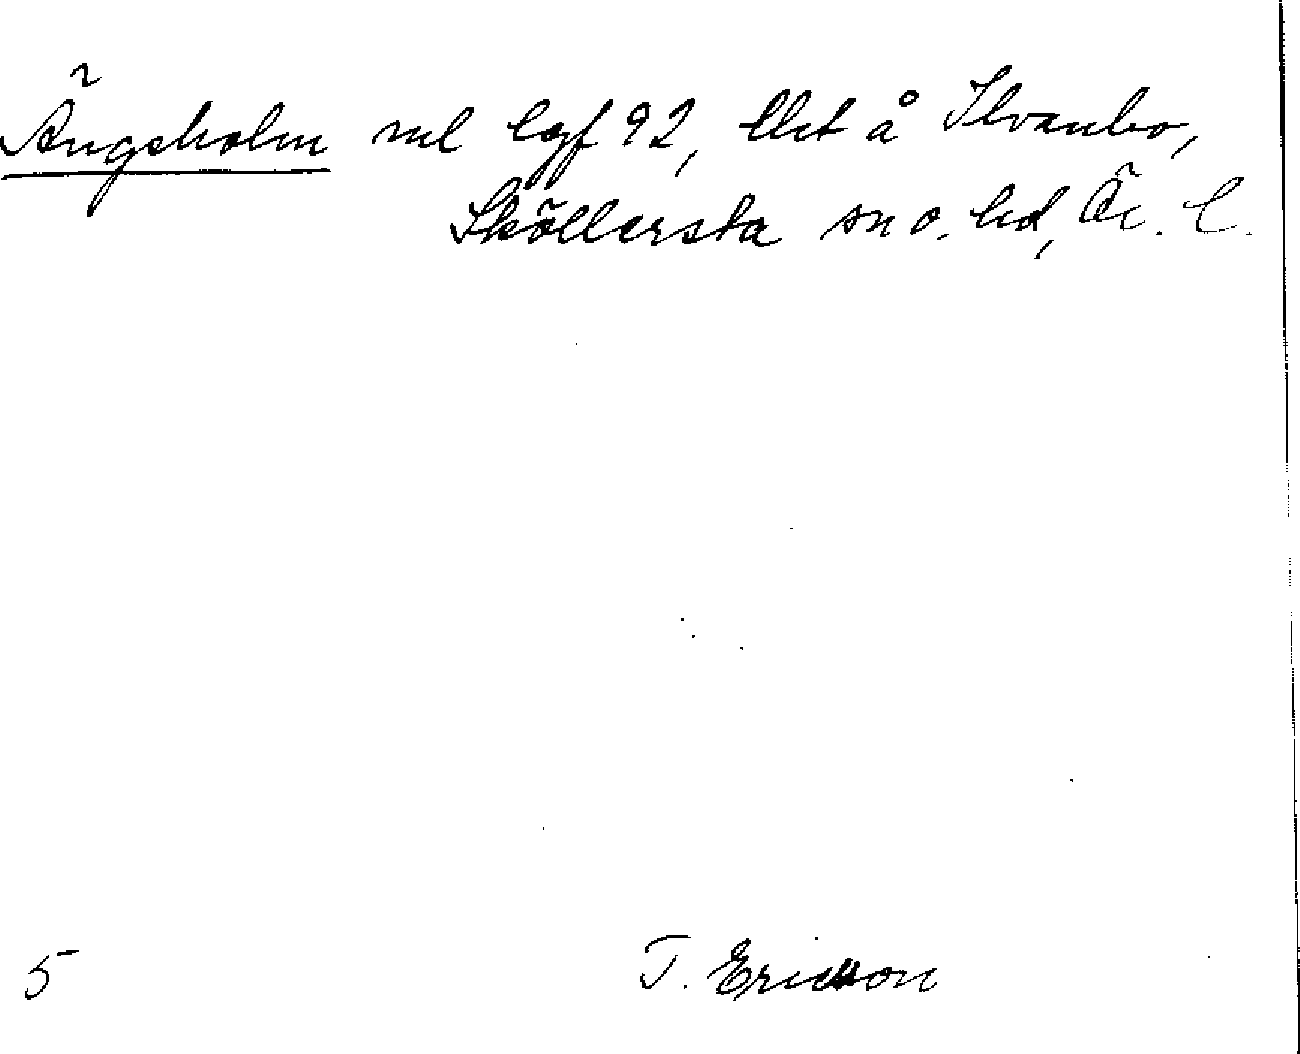 Ängsholm ml lgf 92, lht å Ilvanbo,
Sköllersta sn o. hd, Ör. l.
5
T. Ericsson